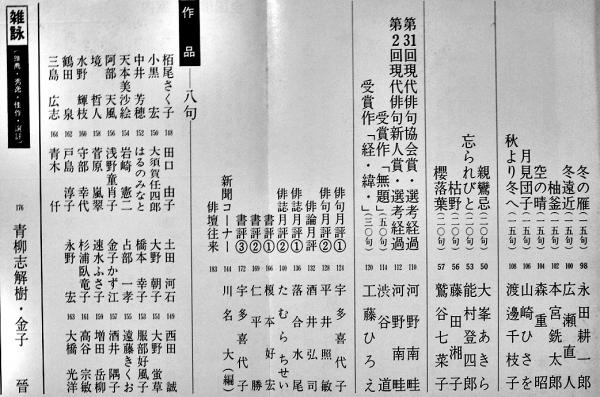 冬の雁(一五句) 98 永田耕一郎
冬遠近(一五句) 100 広瀬直人
柚釜(一五句) 102 本宮銑太郎
空の晴(一五句) 104 森重昭
月見団子(一五句) 106 山崎ひさを
秋より冬へ(一五句) 108 渡邊千枝子
親鸞忌(二〇句) 50 大峯あきら
忘られびと(二〇句) 53 能村登四郎
枯野(二〇句) 56 藤田湘子
櫻落葉(二〇句) 57 鷲谷七菜子
第31回現代俳句協会賞・選考経過 110 河野南畦
第2回現代俳句新人賞・選考経過 112 河野南畦
受賞作「無題」(五〇句) 114 渋谷道
受賞作「経・緯・」(三〇句) 120 工藤ひろえ
俳句月評① 124 宇多喜代子
俳句月評② 128 平井照敏
俳論月評 132 酒井弘司
俳誌月評① 136 落合水尾
俳誌月評② 140 たむらちせい
書評① 166 榎本好宏
書評② 169 仁平勝
書評③ 172 宇多喜代子
新聞コーナー 144 川名大(編)
俳壇往来 183
作品──八句
栢尾さく子 148 田口由子 土田河石 149 西田誠
小黒宏 150 大須賀任四郎 大野朝子 151 大野蛍草
中井芳穂 152 はるのみなと 橋本幸子 153 服部好風子
天本美沙絵 154 岩崎憲二 占部一孝 155 遠藤きくお
阿部天風 156 浅野童肖子 金子かず江 157 酒井隅子
境哲人 158 菅原嵐翠 速水ふさ子 159 増田岳柳
水野輝枝 160 守部幸代 杉浦竜尿子 161 高谷宗敏
鶴田泉 162 戸島淳子 永野宏 163 大橋光洋
三島広志 164 青木仟
雑詠 176 青柳志解樹・金子晉